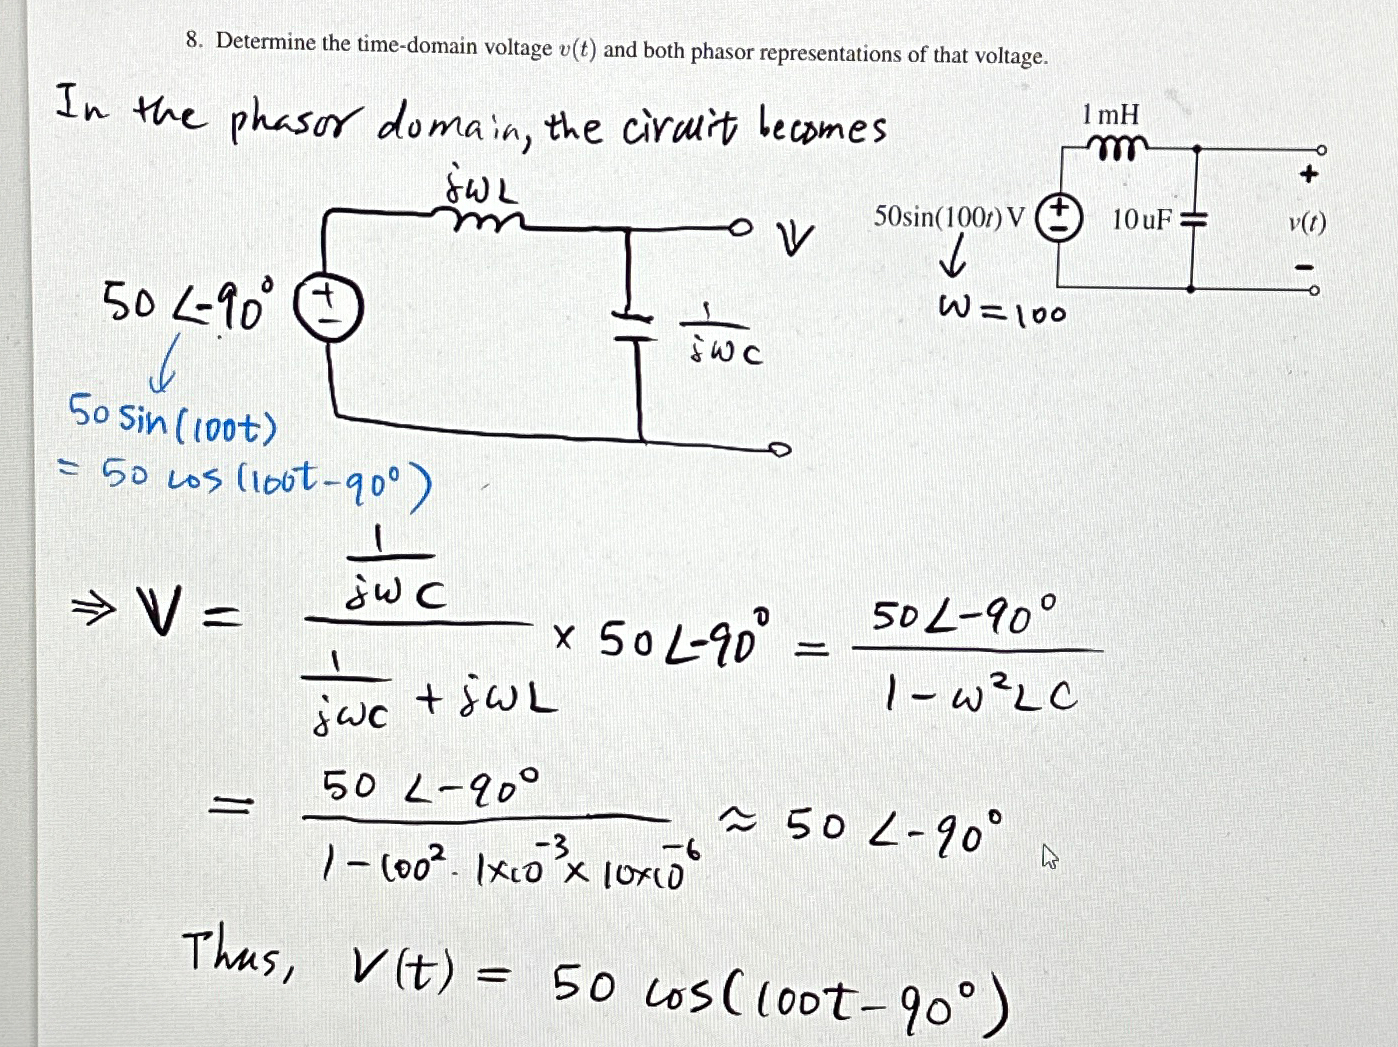 8. Determine the time-domain voltage v(t) and both phasor representations of that voltage.
In the phasor domain, the circuit becomes
1 mH
jωL
+
50sin(100t) V
+
−
10 uF
v(t)
V
−
ω = 100
50 ∠-90°
+
−
1/jωC
50 sin(100t)
= 50 cos(100t-90°)
⇒ V = (1/jωC)/(1/jωC + jωL) × 50∠-90° = 50∠-90°/(1-ω²LC)
= 50 ∠-90°/(1-100²·1×10⁻³×10×10⁻⁶) ≈ 50 ∠-90°
Thus, V(t) = 50 cos(100t-90°)